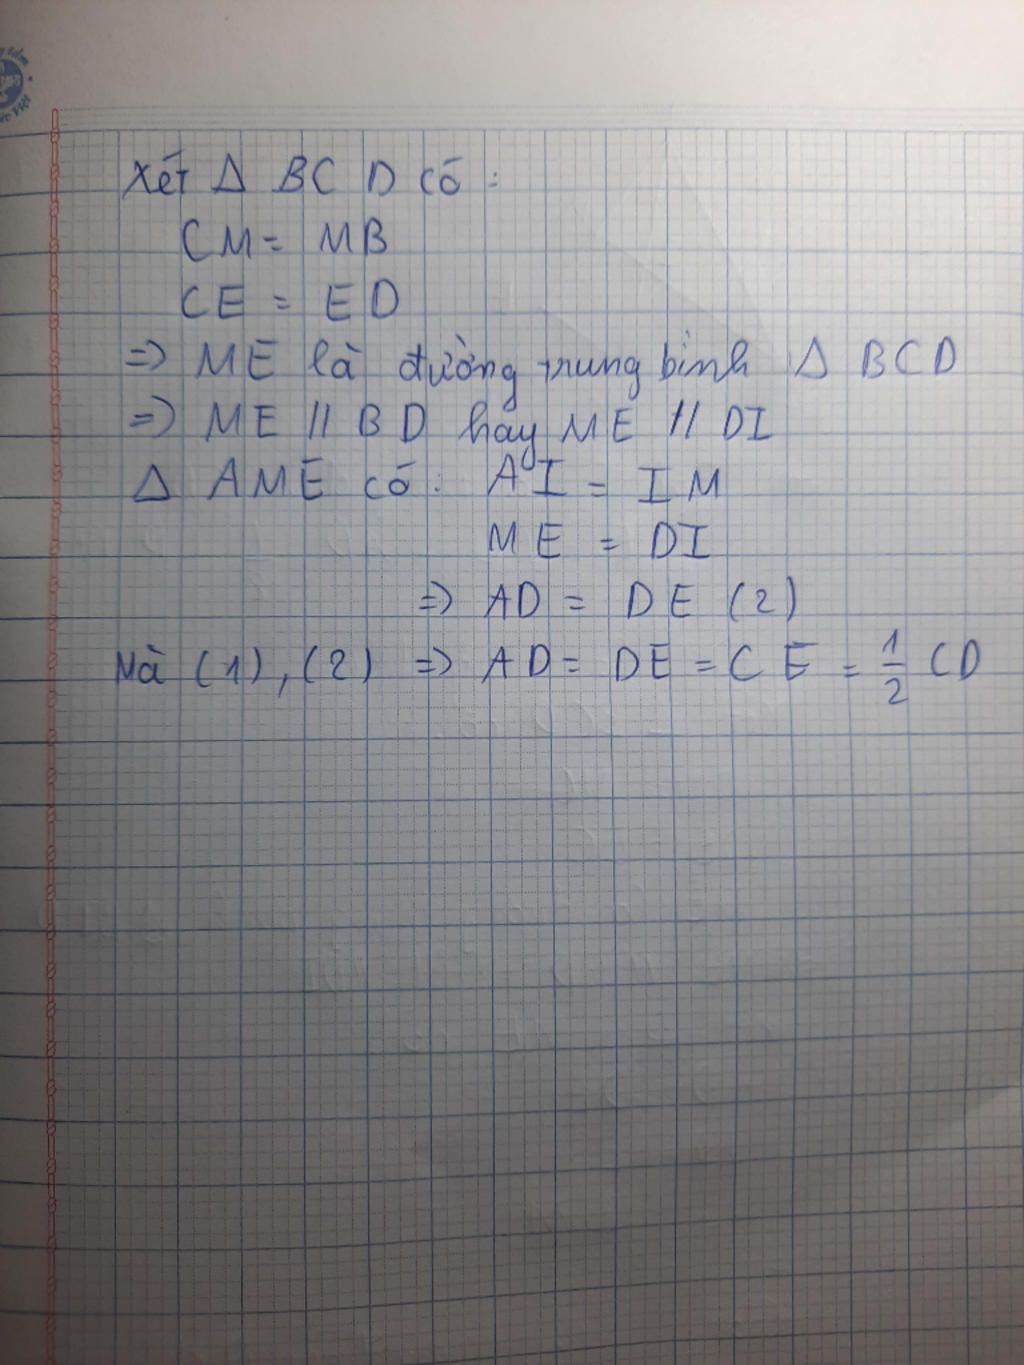 Xét Δ BCD có :
CM = MB
CE = ED
=> ME là đường trung bình Δ BCD
=> ME // BD hay ME // DI
Δ AME có : AI = IM
ME = DI
=> AD = DE (2)
Mà (1), (2) => AD = DE = CE = 1/2 CD